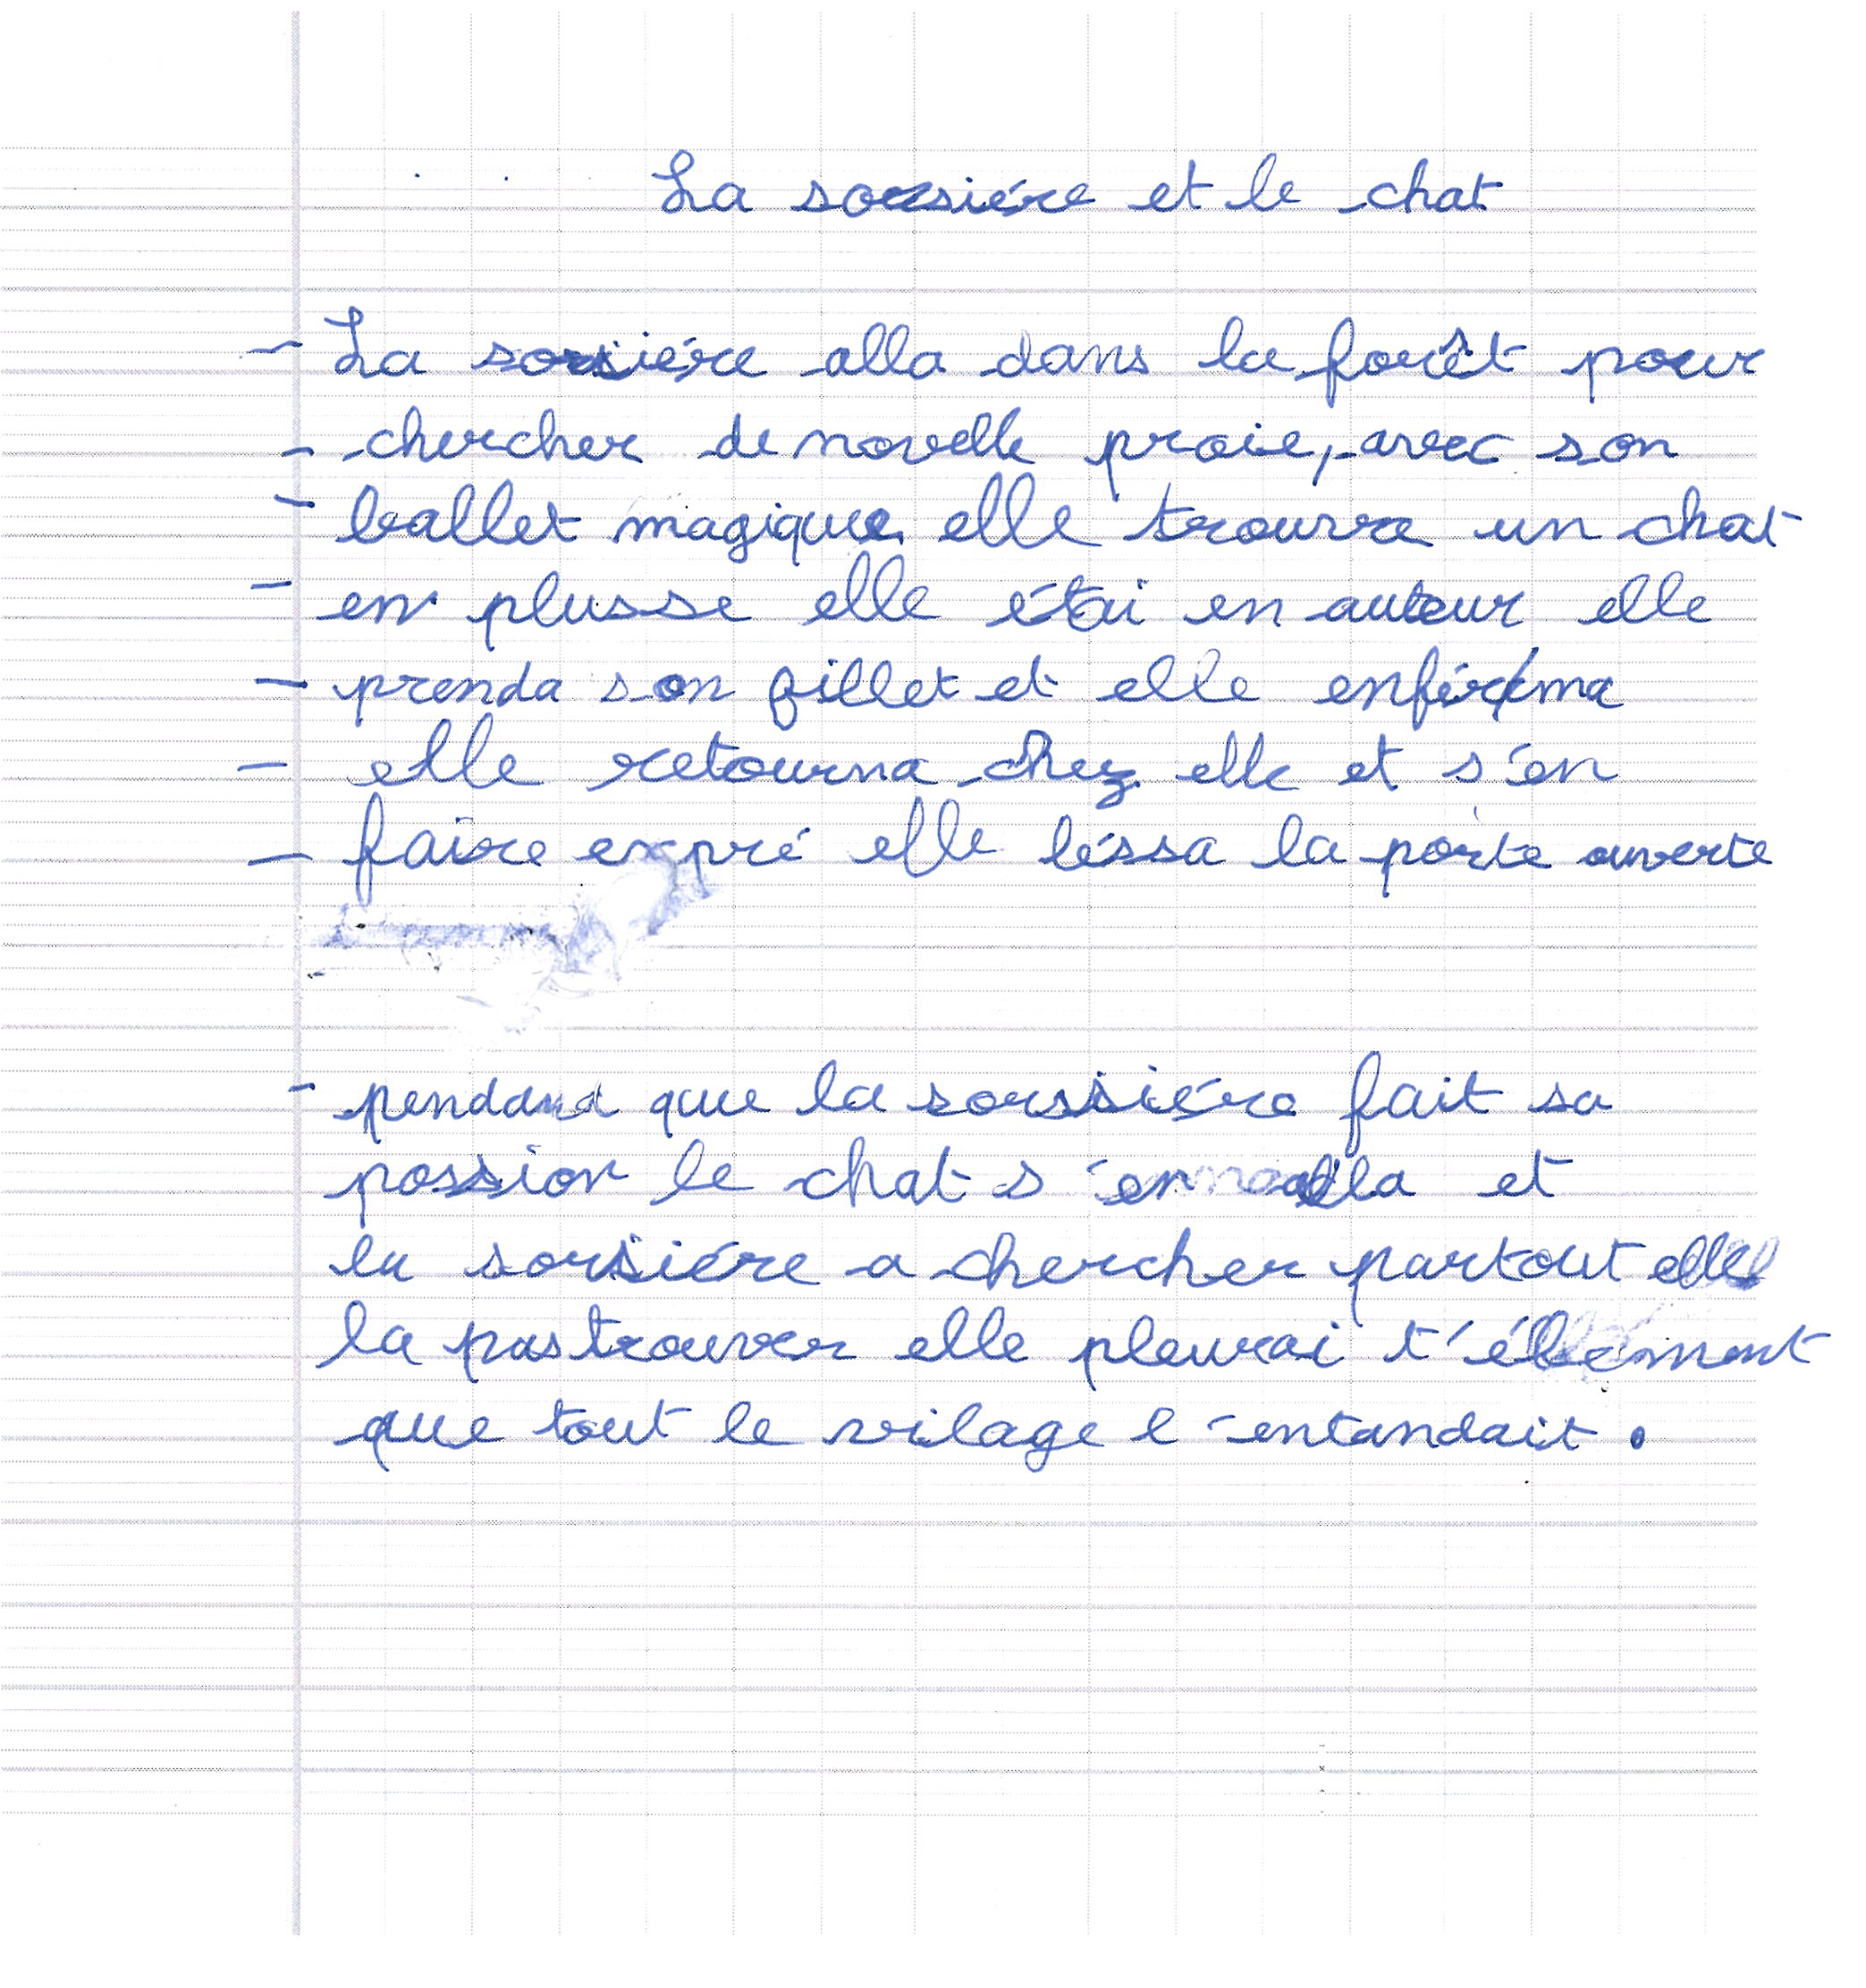 La sorsiére et le chat
- La sorsiére alla dans la forêt pour
- chercher de novelle proie, avec son
- ballet magique elle trouva un chat
- en plusse elle étai en auteur elle
- prenda son fillet et elle enferma
- elle retourna chez elle et s'en
- faire expré elle léssa la porte ouverte
- pendand que la sorssiére fait sa
possion le chat s'en alla et
la sorsiére a chercher partout elle
la pas trouver elle pleurai t'élément
que tout le vilage l'entandait.